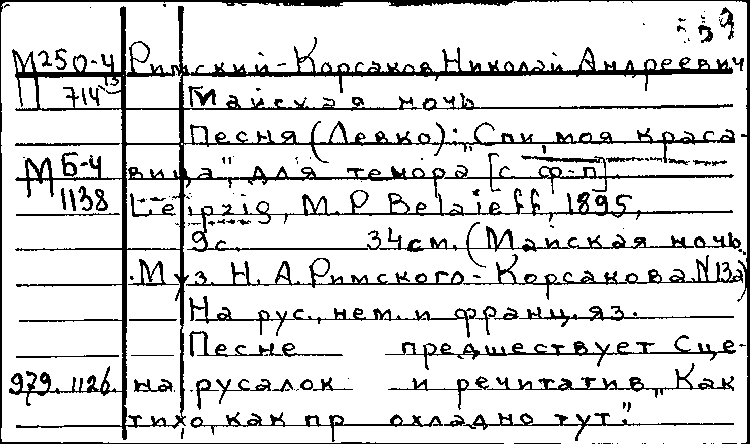 559
М250-4 Римский-Корсаков, Николай Андреевич
П 714¹³ Майская ночь
Песня (Левко): „Спи, моя краса-
М Б-4 вица", для тенора [с ф-п].
1138 Leipzig, M. P. Belaieff, 1895,
9с. 34см. (Майская ночь.
Муз. Н. А. Римского-Корсакова. N13а)
На рус., нем. и франц. яз.
Песне предшествует Сце-
979. 1126. на русалок и речитатив „Как
тихо, как пр охладно тут."